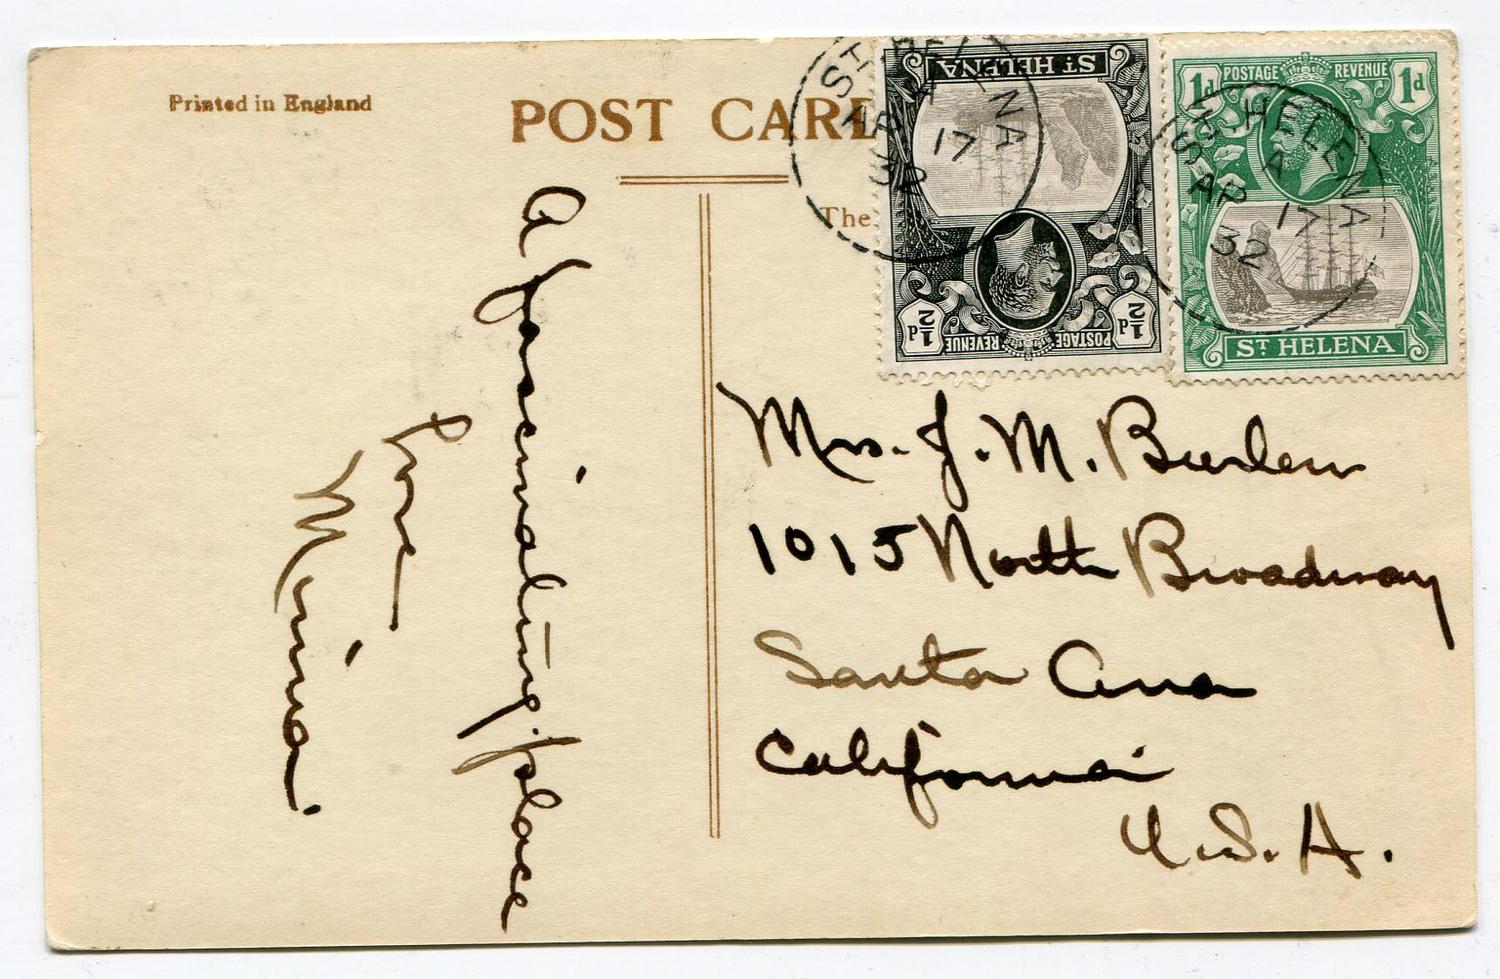 Printed in England
POST CARD
The
A fascinating place
Love
Mina
Mrs. J. M. Burlew
1015 North Broadway
Santa Ana
California
U.S.A.
ST HELENA
½d ½d
POSTAGE REVENUE
ST HELENA
A
AP 17
32
1d POSTAGE REVENUE 1d
ST HELENA
ST. HELENA
A
AP 17
32